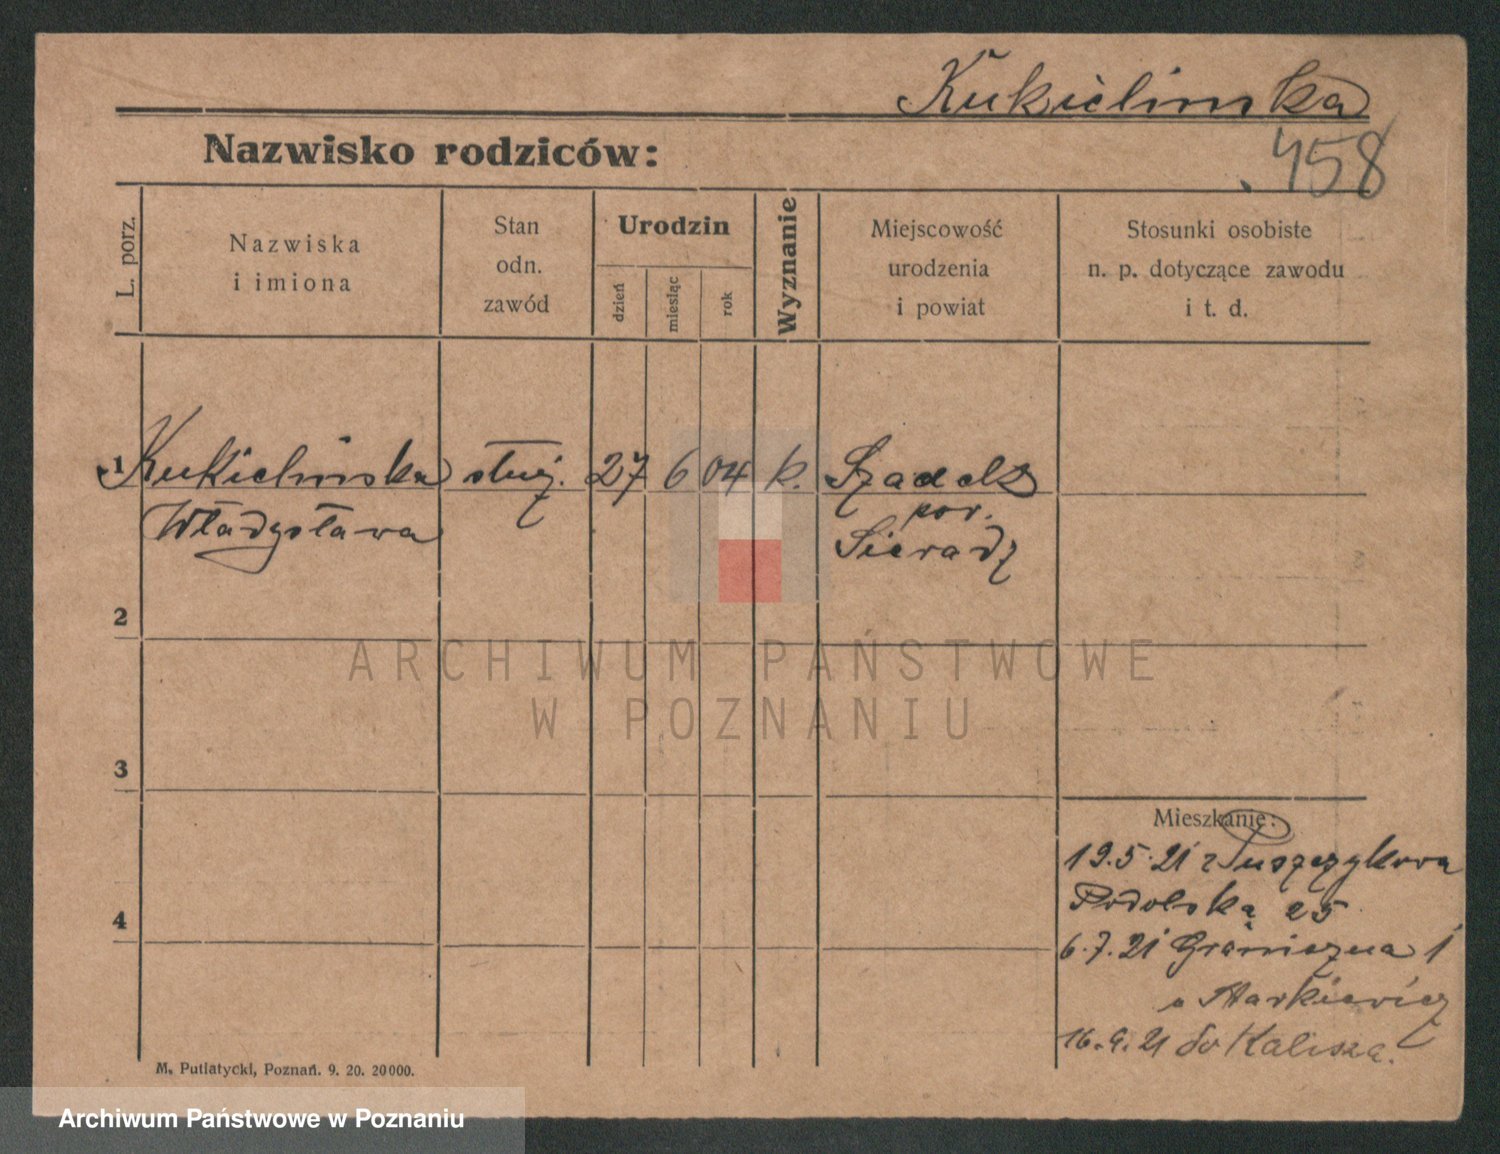 Kukielinska
458
Nazwisko rodziców:
L. porz.
Nazwiska
i imiona
Stan
odn.
zawód
Urodzin
dzień
miesiąc
rok
Wyznanie
Miejscowość
urodzenia
i powiat
Stosunki osobiste
n. p. dotyczące zawodu
i t. d.
1 Kukielinska służ. 27 6 04 k. Szadek
Władysława pow.
Sieradz
2
ARCHIWUM PAŃSTWOWE
W POZNANIU
3
Mieszkanie:
19.5.21 z Puszczykowa
Podolska 25
6.7.21 Graniczna 1
u Markiewicz
16.9.21 do Kalisza.
4
M. Putiatycki, Poznań. 9. 20. 20000.
Archiwum Państwowe w Poznaniu